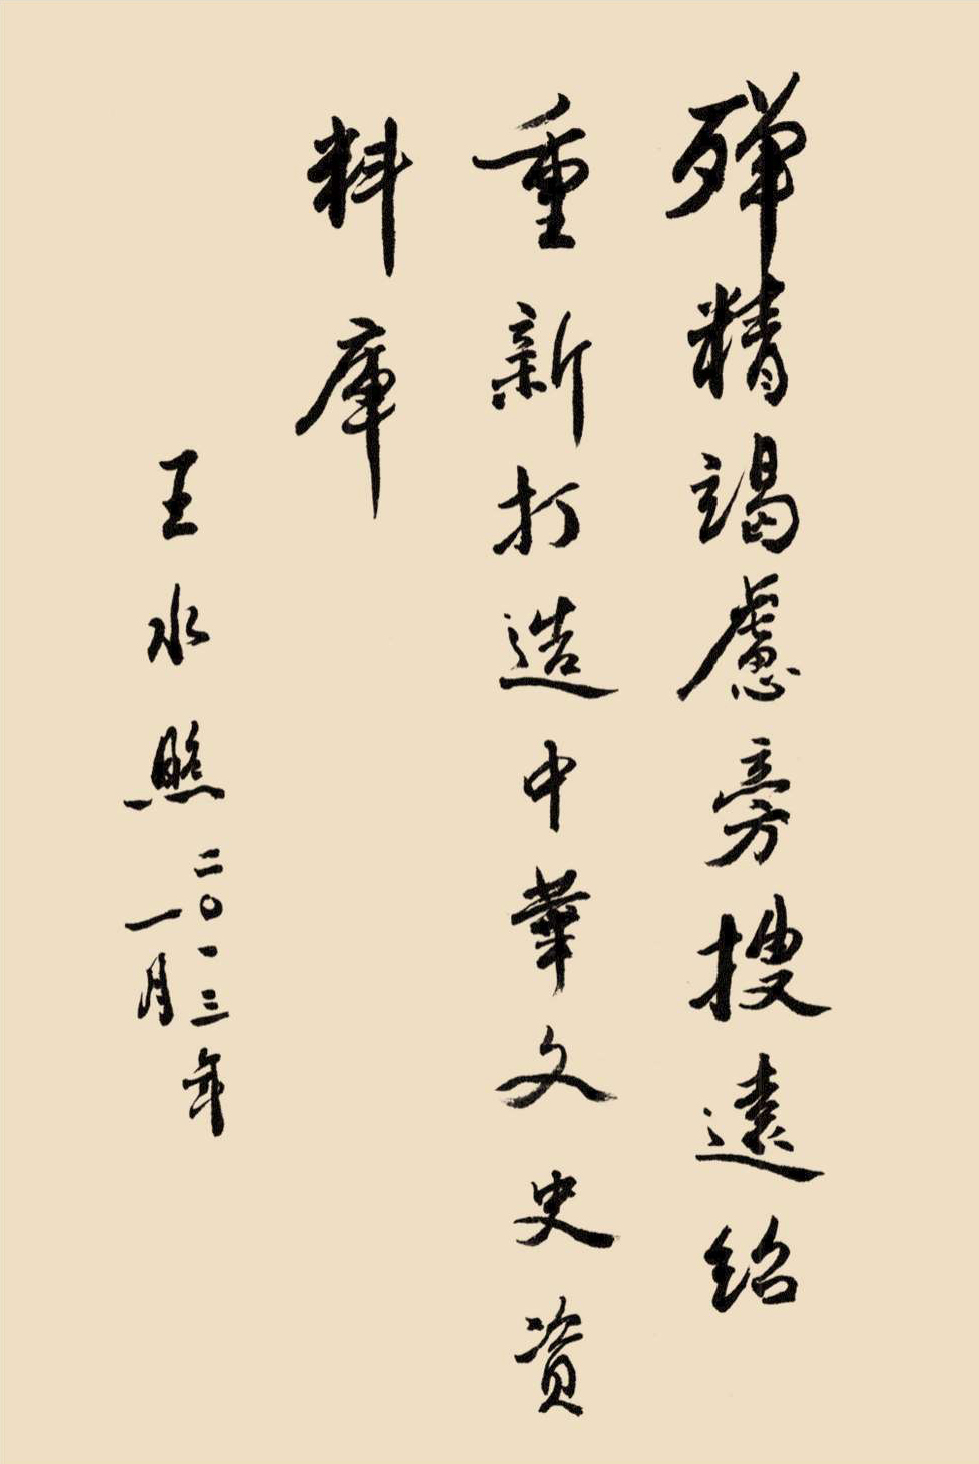 殚精竭慮旁搜遠紹
重新打造中華文史资
料庫
王水照
二〇一三年
一月